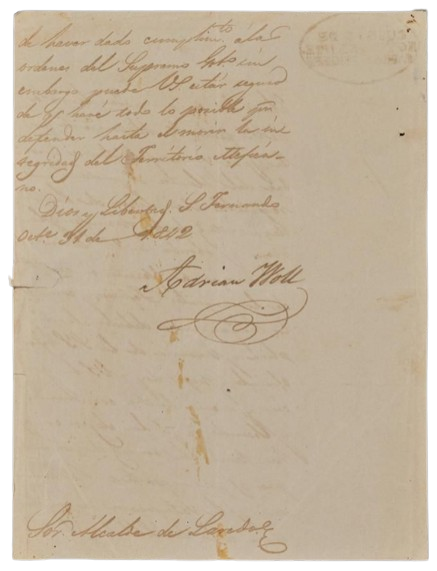 de haver dado cumplim.to a las
ordenes del Supremo Gob.o sin
embargo puede VS estár seguro
de q.e haré todo lo posible p.r
defender hasta el morir la in-
tegridad del Territorio Mejica-
no.
Dios y Libertad. S. Fernando
Oct.e 31 de 1842
Adrian Woll
Sor. Alcalde de Laredo